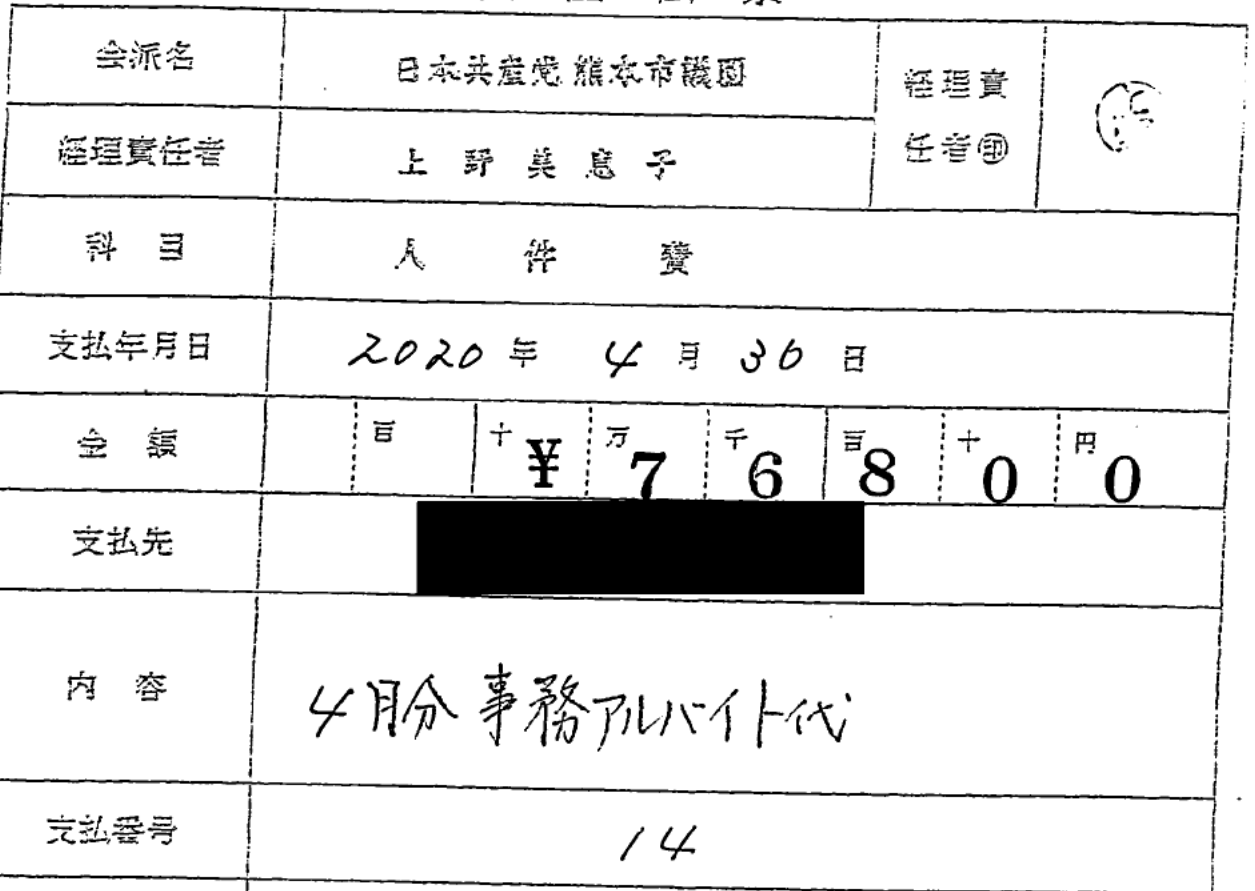 会派名 日本共産党 熊本市議団 経理責任者㊞
経理責任者 上野美恵子
科目 人件費
支払年月日 2020年 4月 30日
金額 百 十 万 千 百 十 円
¥76800
支払先
内容 4月分 事務アルバイト代
支払番号 14